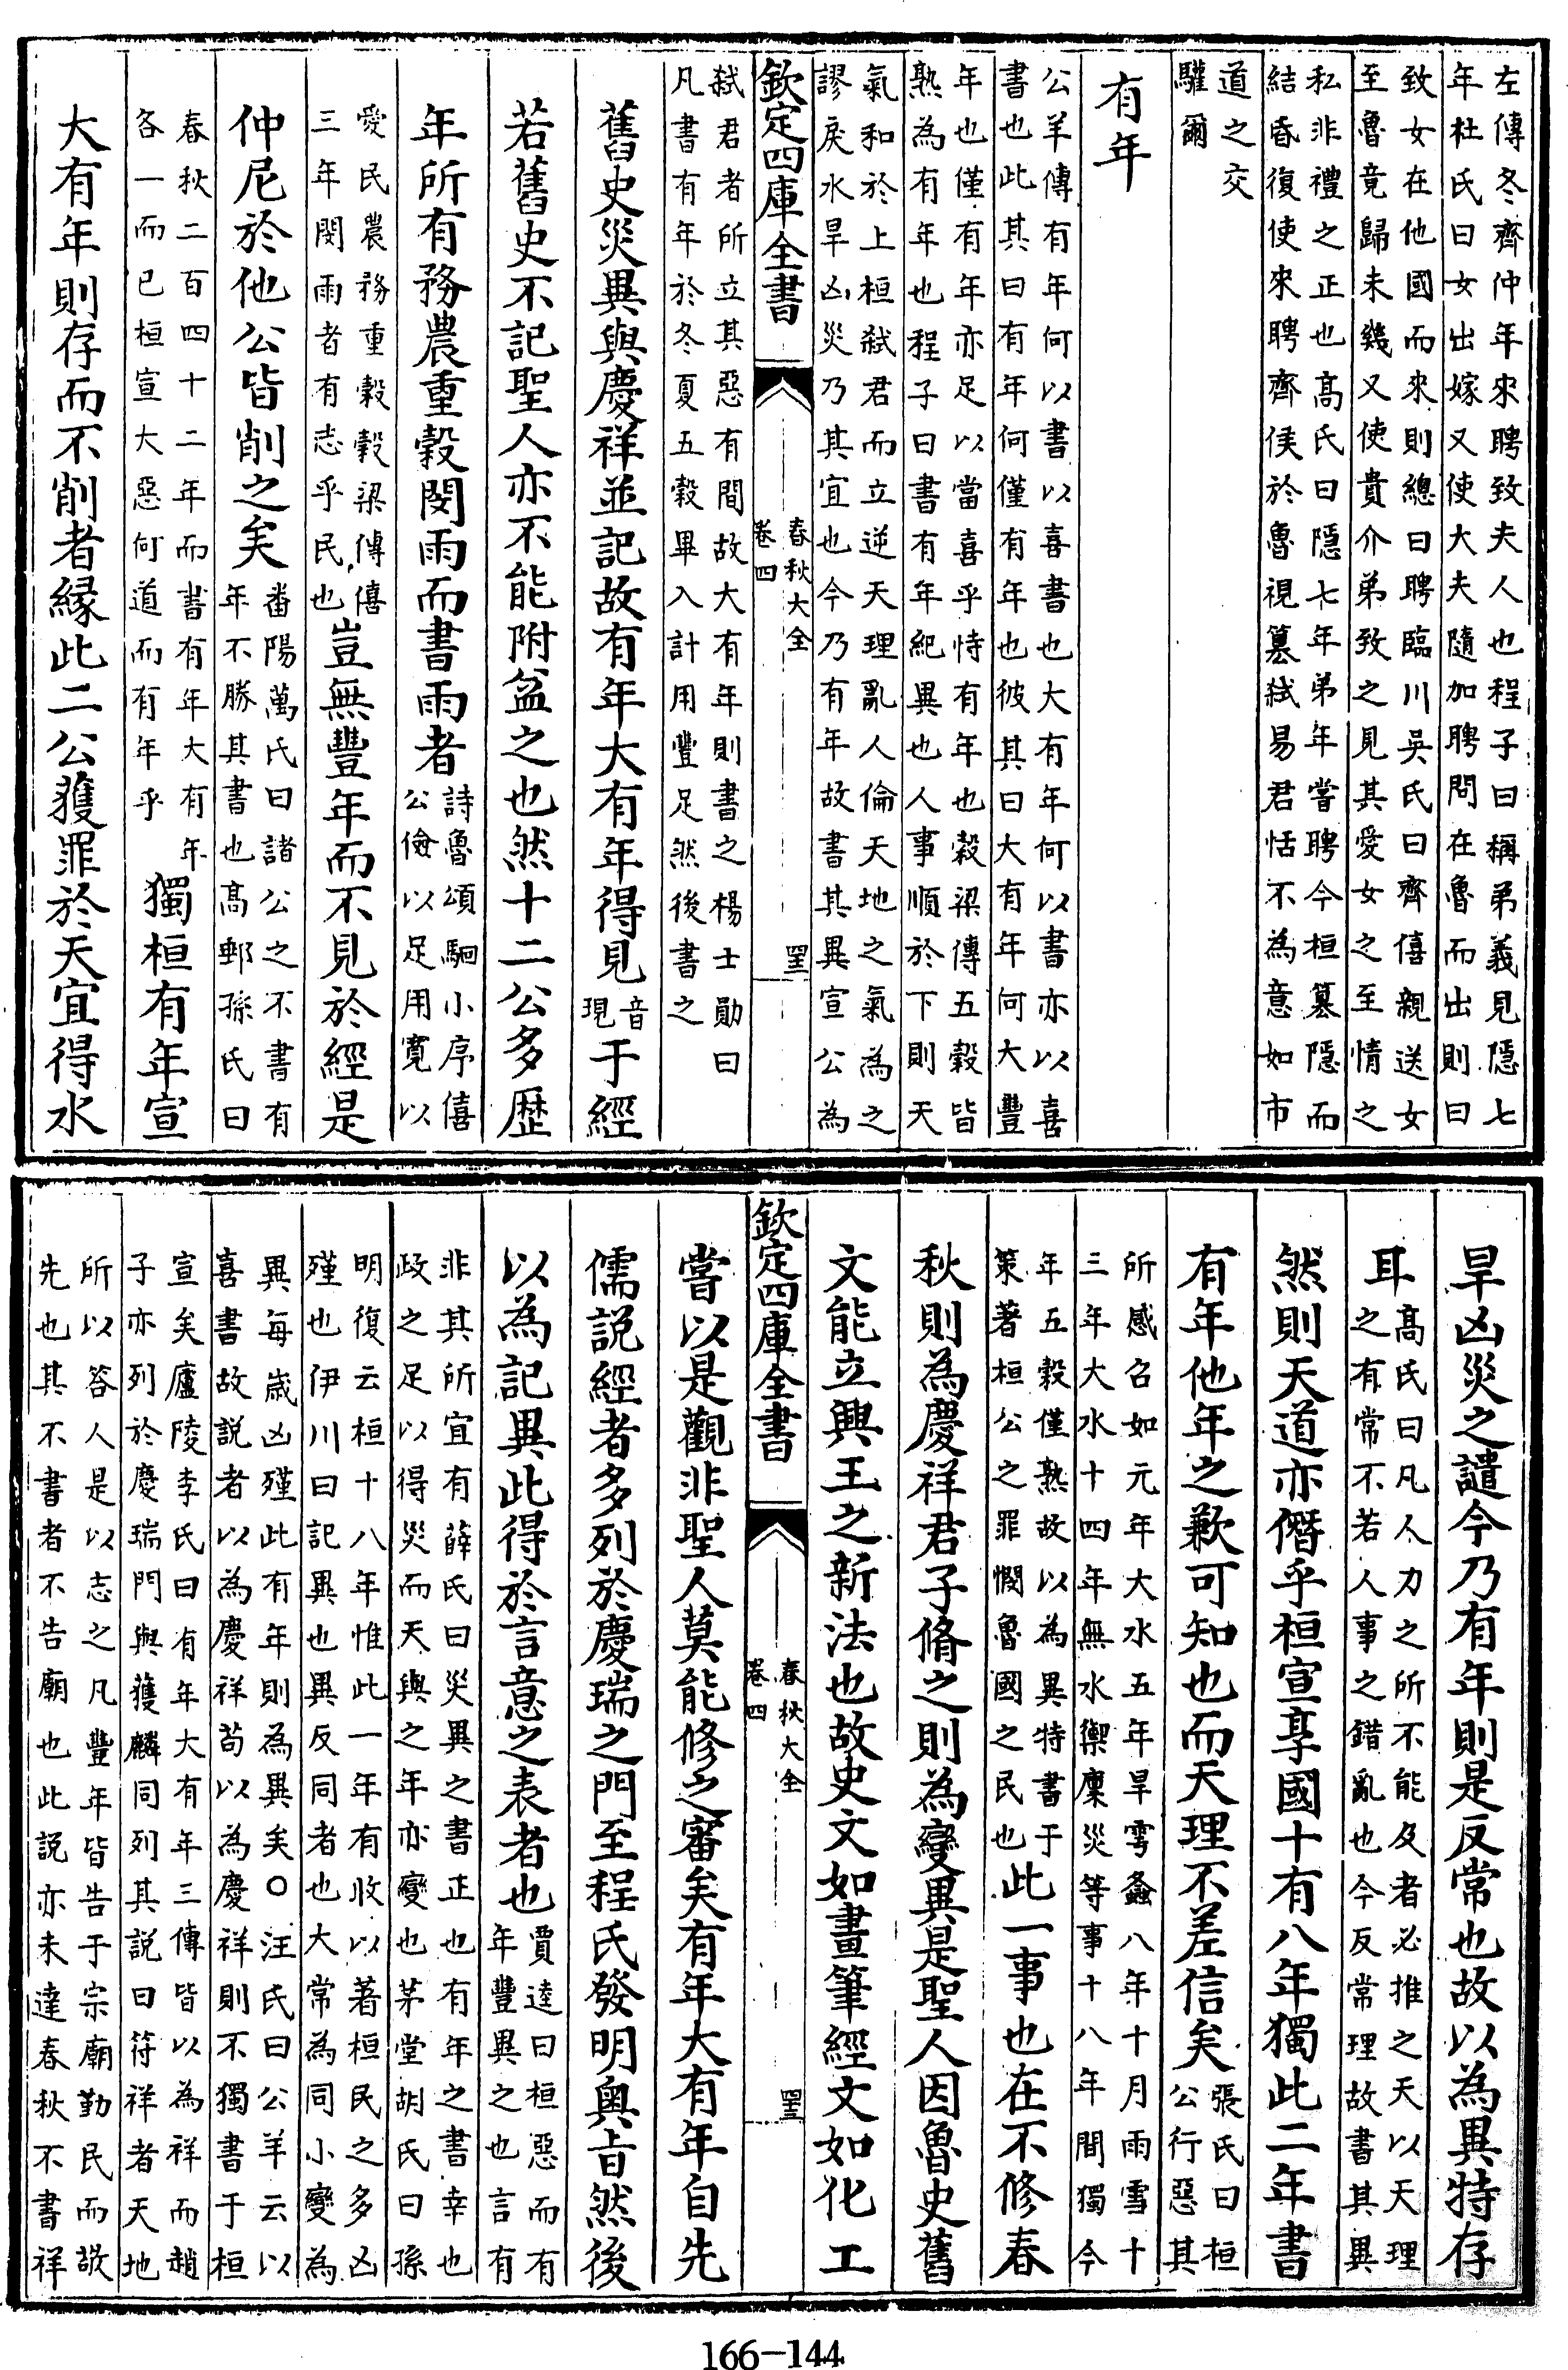 左傳冬齊仲年來聘致夫人也程子曰稱弟義見隱七
年杜氏曰女出嫁又使大夫隨加聘問在魯而出則曰
致女在他國而來則總曰聘臨川吳氏曰齊僖親送女
至魯竟歸未幾又使貴介弟致之見其愛女之至情之
私非禮之正也高氏曰隱七年弟年嘗聘今桓篡隱而
結昏復使來聘齊侯於魯視篡弒易君恬不為意如市
道之交
驩爾
有年
公羊傳有年何以書以喜書也大有年何以書亦以喜
書也此其曰有年何僅有年也彼其曰大有年何大豐
年也僅有年亦足以當喜乎恃有年也穀梁傳五穀皆
熟為有年也程子曰書有年紀異也人事順於下則天
氣和於上桓弒君而立逆天理亂人倫天地之氣為之
謬戾水旱凶災乃其宜也今乃有年故書其異宣公為
欽定四庫全書
春秋大全
卷四
弒君者所立其惡有間故大有年則書之楊士勛曰
凡書有年於冬夏五穀畢入計用豐足然後書之
舊史災異與慶祥並記故有年大有年得見音現于經
若舊史不記聖人亦不能附益之也然十二公多歷
年所有務農重穀閔雨而書雨者詩魯頌駉小序僖公儉以足用寬以
愛民農務重穀穀梁傳僖三年閔雨者有志乎民也豈無豐年而不見於經是
仲尼於他公皆削之矣番陽萬氏曰諸公之不書有年不勝其書也高郵孫氏曰
春秋二百四十二年而書有年大有年各一而已桓宣大惡何道而有年乎獨桓有年宣
大有年則存而不削者緣此二公獲罪於天宜得水
旱凶災之譴今乃有年則是反常也故以為異特存
耳高氏曰凡人力之所不能及者必推之天以天理之有常不若人事之錯亂也今反常理故書其異
然則天道亦僭乎桓宣享國十有八年獨此二年書
有年他年之歉可知也而天理不差信矣張氏曰桓公行惡其
所感召如元年大水五年旱雩螽八年十月雨雪十
三年大水十四年無水禦廩災等事十八年間獨今
年五穀僅熟故以為異特書于策著桓公之罪憫魯國之民也此一事也在不修春
秋則為慶祥君子脩之則為變異是聖人因魯史舊
文能立興王之新法也故史文如畫筆經文如化工
欽定四庫全書
春秋大全
卷四
嘗以是觀非聖人莫能修之審矣有年大有年自先
儒説經者多列於慶瑞之門至程氏發明奧旨然後
以為記異此得於言意之表者也賈逵曰桓惡而有年豐異之也言有
非其所宜有薛氏曰災異之書正也有年之書幸也
政之足以得災而天與之年亦變也茅堂胡氏曰孫
明復云桓十八年惟此一年有收以著桓民之多凶
殣也伊川曰記異也異反同者也大常為同小變為
異每歲凶殣此有年則為異矣○汪氏曰公羊云以
喜書故説者以為慶祥苟以為慶祥則不獨書于桓
宣矣廬陵李氏曰有年大有年三傳皆以為祥而趙
子亦列於慶瑞門與獲麟同列其説曰符祥者天地
所以答人是以志之凡豐年皆告于宗廟勤民而敬
先也其不書者不告廟也此説亦未達春秋不書祥
166-144